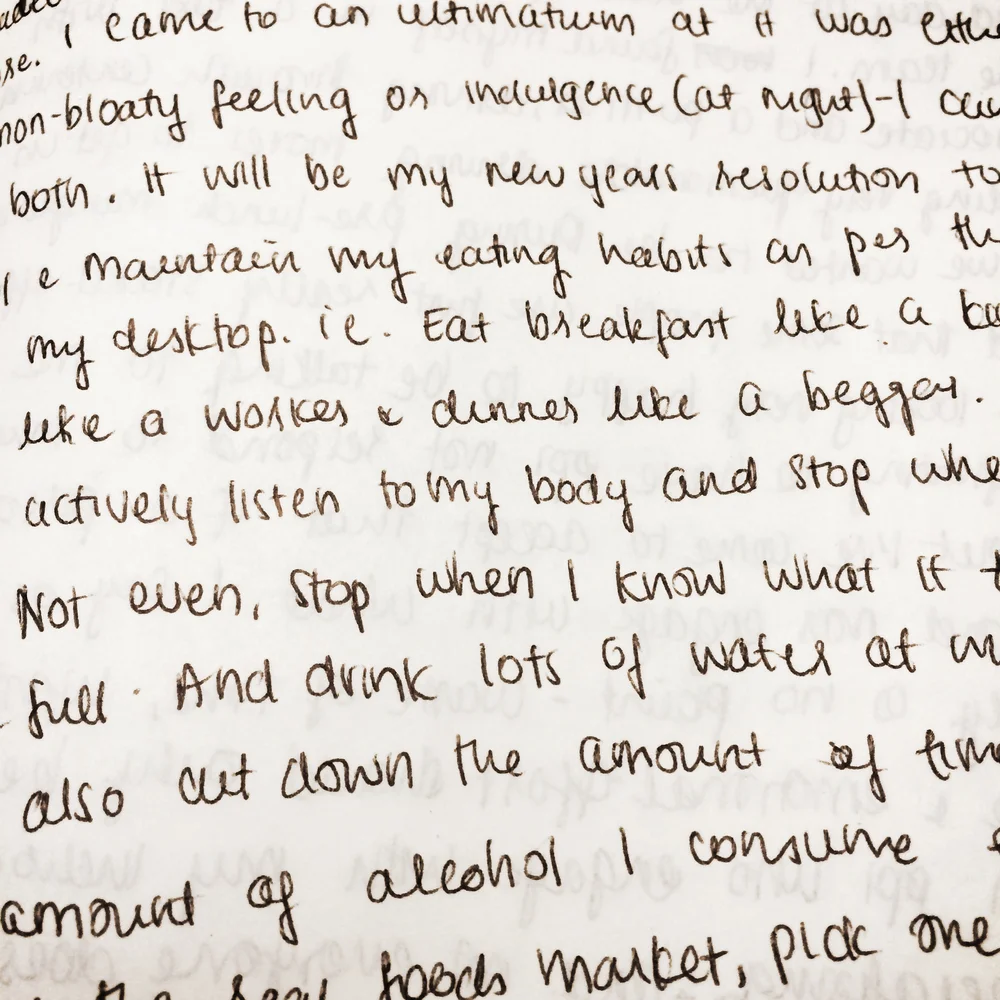 I came to an ultimatum at it was
non-bloaty feeling or indulgence (at night) - I
both. It will be my new years resolution to
maintain my eating habits as per
my desktop. ie. Eat breakfast like a
like a worker & dinner like a beggar.
actively listen to my body and stop
Not even, stop when I know what it
full. And drink lots of water at
also cut down the amount of
amount of alcohol I consume
foods market, pick one